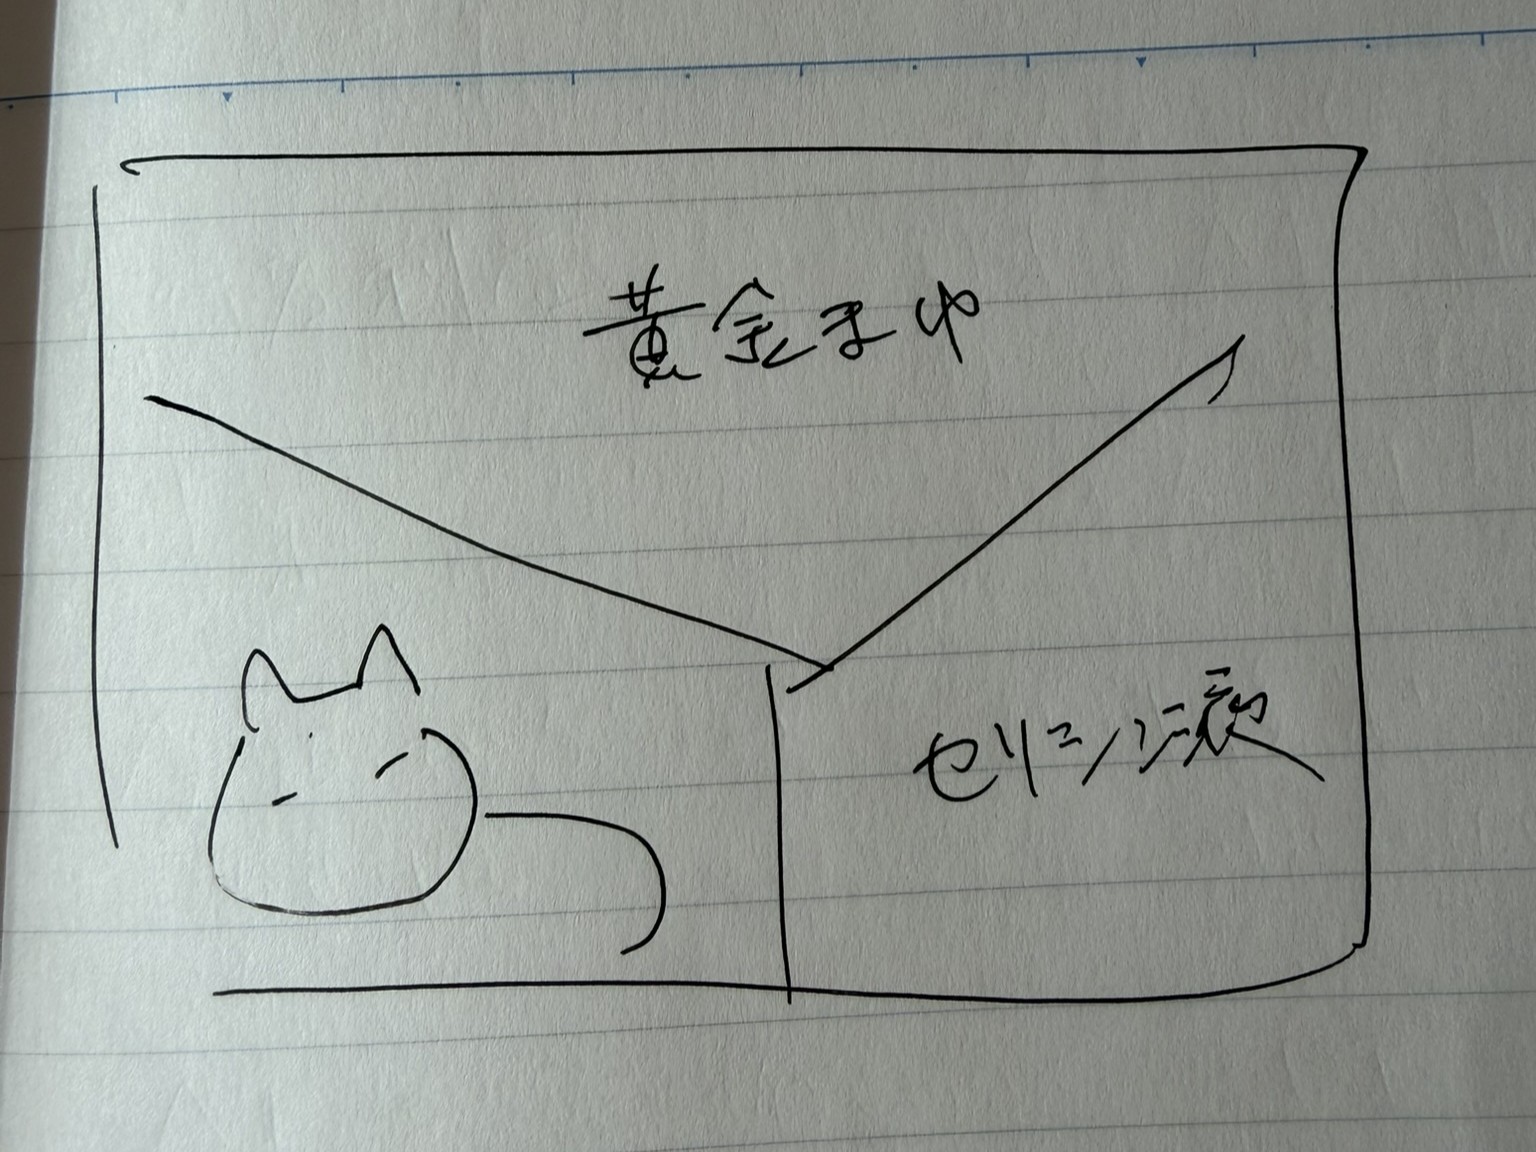 黄金まゆ
セリシン液